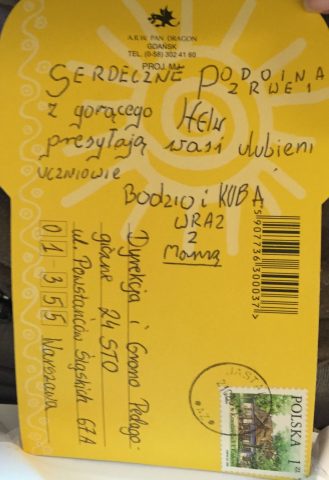 A.B.W. PAN DRAGON
GDAŃSK
TEL. (0-58) 302 41 60
PROJ. M.F.
SERDECZNE PODOINA
ZRWEI
z gorącego HELu
przesyłają wasi ulubieni
UCZNIOWIE
Bodzio i KUBA
WRAZ
Z
Mamą
5907736300037
Dyrekcja i Grono Pedago-
giczne 24 STO
ul. Powstańców Śląskich 67A
01-355 Warszawa
JASTA
POLSKA
1 zł